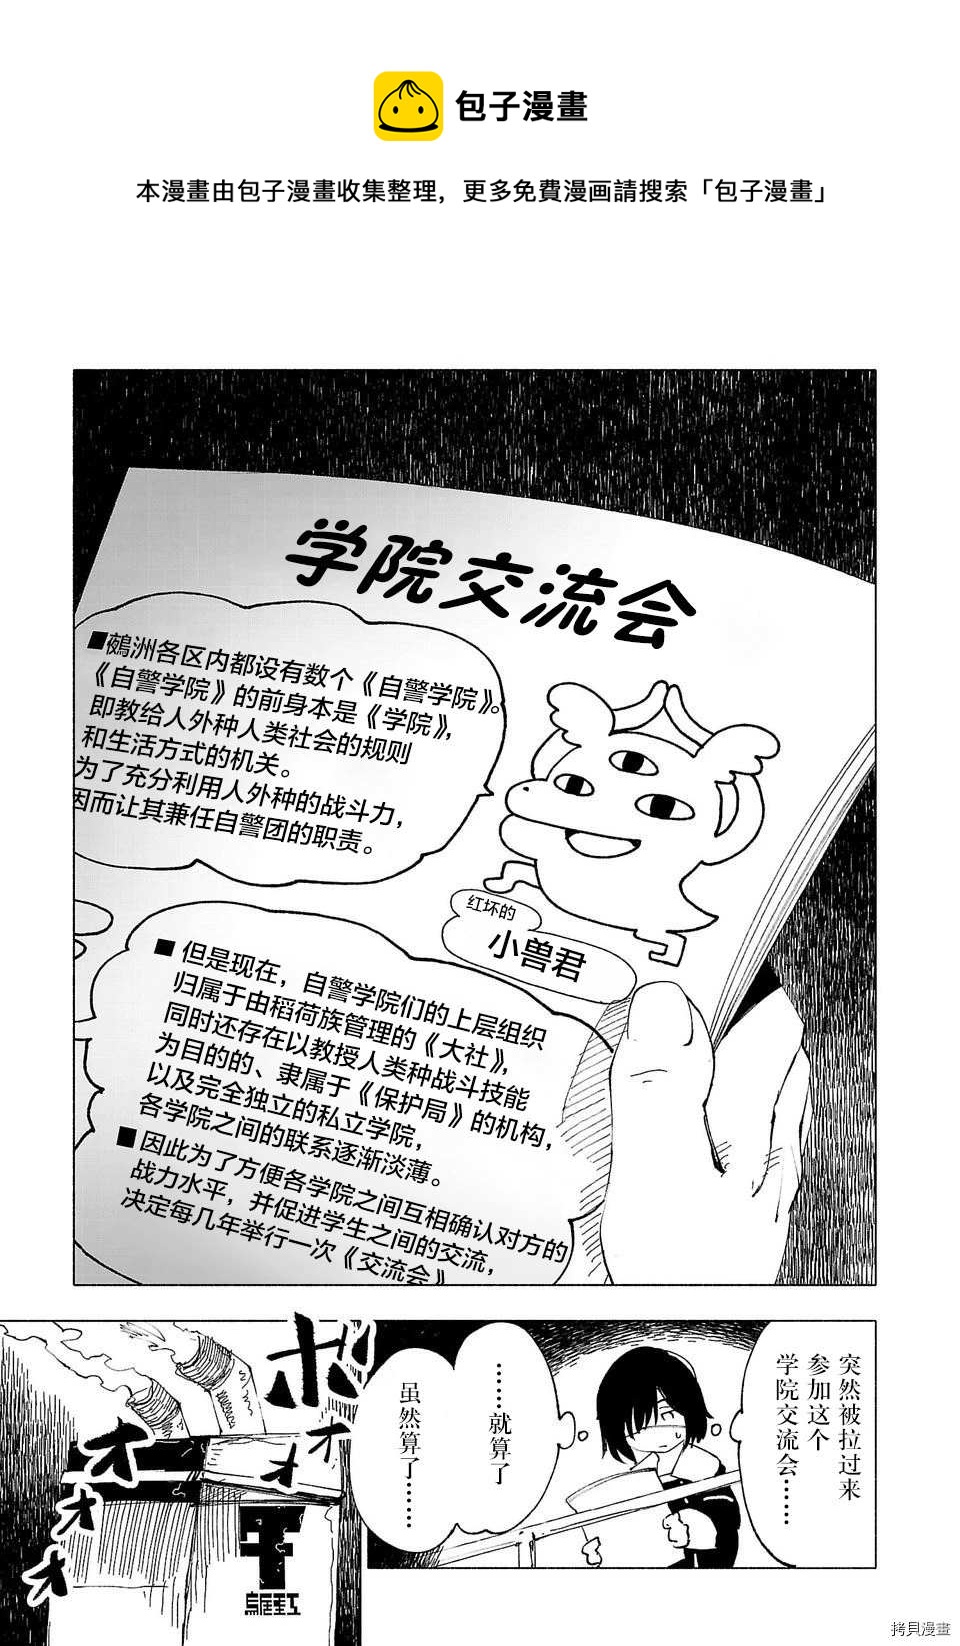 包子漫畫
本漫畫由包子漫畫收集整理，更多免費漫画請搜索「包子漫畫」
学院交流会
■鵺洲各区内都设有数个《自警学院》。
《自警学院》的前身本是《学院》，
即教给人外种人类社会的规则
和生活方式的机关。
为了充分利用人外种的战斗力，
因而让其兼任自警团的职责。
红坏的
小兽君
■ 但是现在，自警学院们的上层组织
归属于由稻荷族管理的《大社》，
同时还存在以教授人类种战斗技能
为目的的、隶属于《保护局》的机构，
以及完全独立的私立学院，
各学院之间的联系逐渐淡薄。
■ 因此为了方便各学院之间互相确认对方的
战力水平，并促进学生之间的交流，
决定每几年举行一次《交流会》
突然被拉过来
参加这个
学院交流会……
…就算了
虽然算了……
ボ
オ
オ
オ
オ
オ
拷貝漫畫